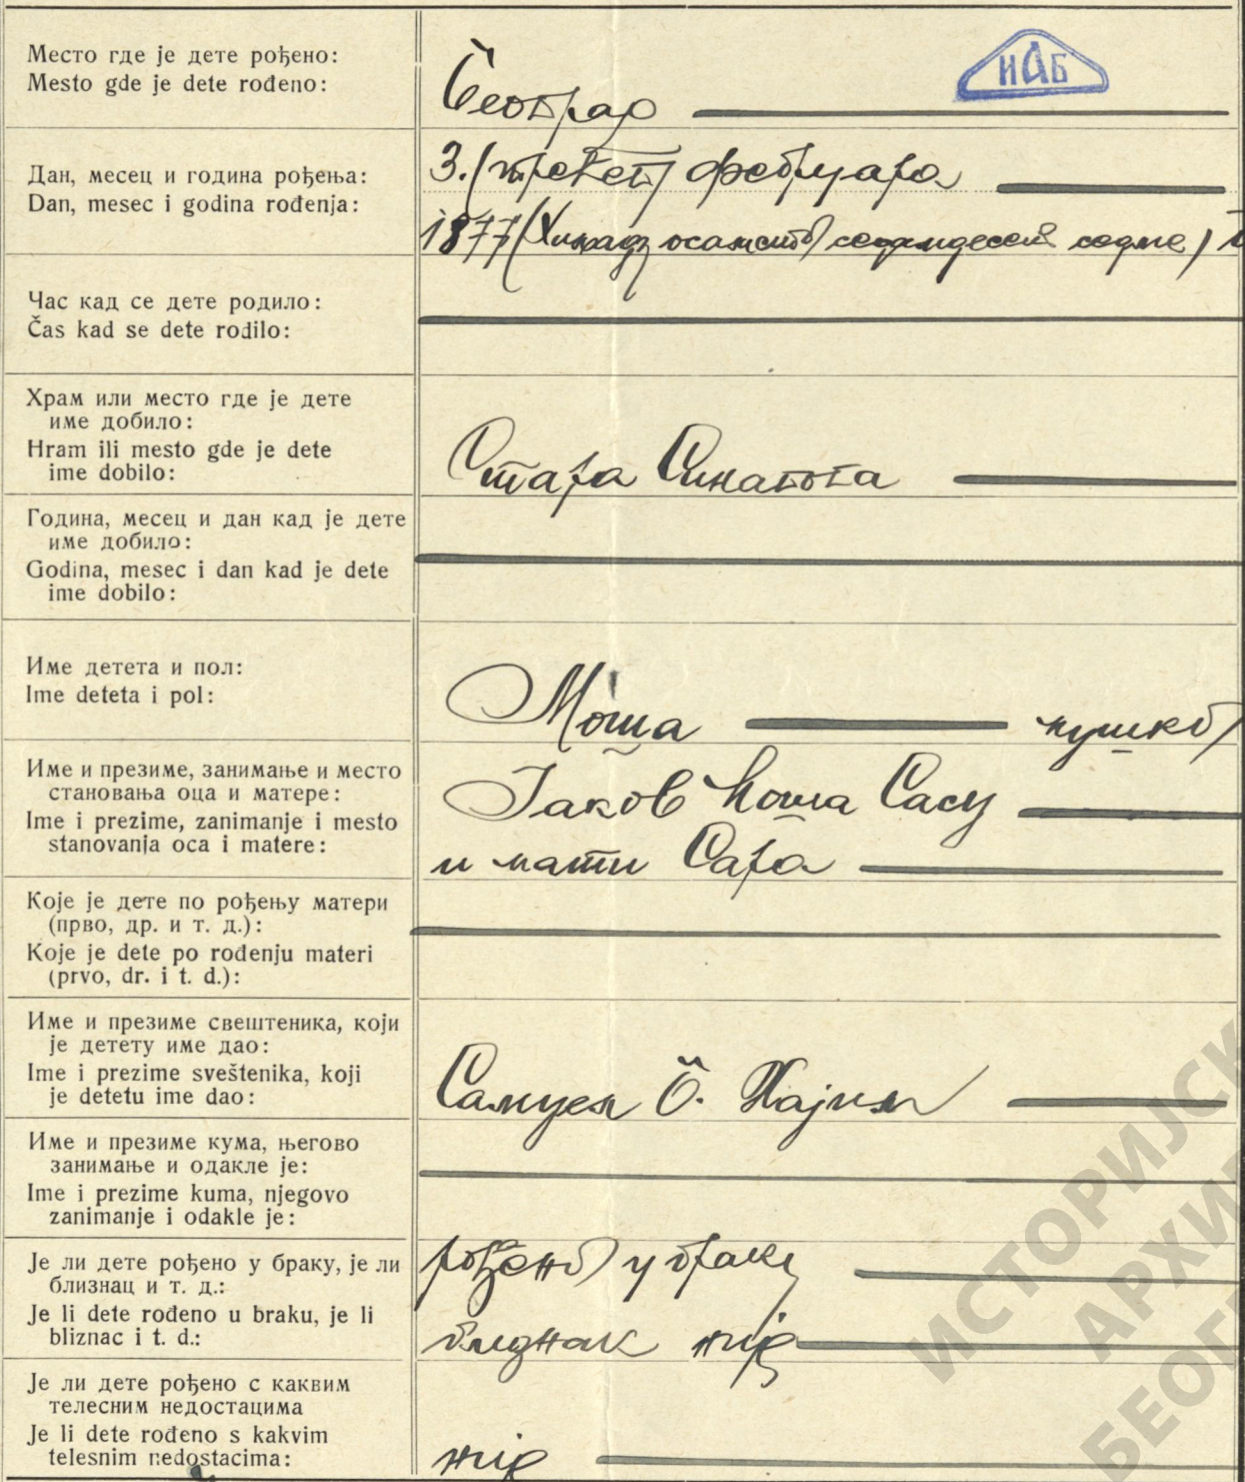 Место где је дете рођено:
Mesto gde je dete rođeno:
Београд
ИАБ
Дан, месец и година рођења:
Dan, mesec i godina rođenja:
3. (трећег) фебруара
1877 (Хиљаду осамсто седамдесет седме)
Час кад се дете родило:
Čas kad se dete rodilo:
Храм или место где је дете
име добило:
Hram ili mesto gde je dete
ime dobilo:
Стара Синагога
Година, месец и дан кад је дете
име добило:
Godina, mesec i dan kad je dete
ime dobilo:
Име детета и пол:
Ime deteta i pol:
Моша мушко
Име и презиме, занимање и место
становања оца и матере:
Ime i prezime, zanimanje i mesto
stanovanja oca i matere:
Јаков Моша Сасу
и мати Сара
Које је дете по рођењу матери
(прво, др. и т. д.):
Koje je dete po rođenju materi
(prvo, dr. i t. d.):
Име и презиме свештеника, који
је детету име дао:
Ime i prezime sveštenika, koji
je detetu ime dao:
Самуел Б. Хајим
Име и презиме кума, његово
занимање и одакле је:
Ime i prezime kuma, njegovo
zanimanje i odakle je:
Је ли дете рођено у браку, је ли
близнац и т. д.:
Je li dete rođeno u braku, je li
bliznac i t. d.:
рођено у браку
близнак није
Је ли дете рођено с каквим
телесним недостацима
Je li dete rođeno s kakvim
telesnim nedostacima:
није
ИСТОРИЈСК
АРХИ
БЕОГ